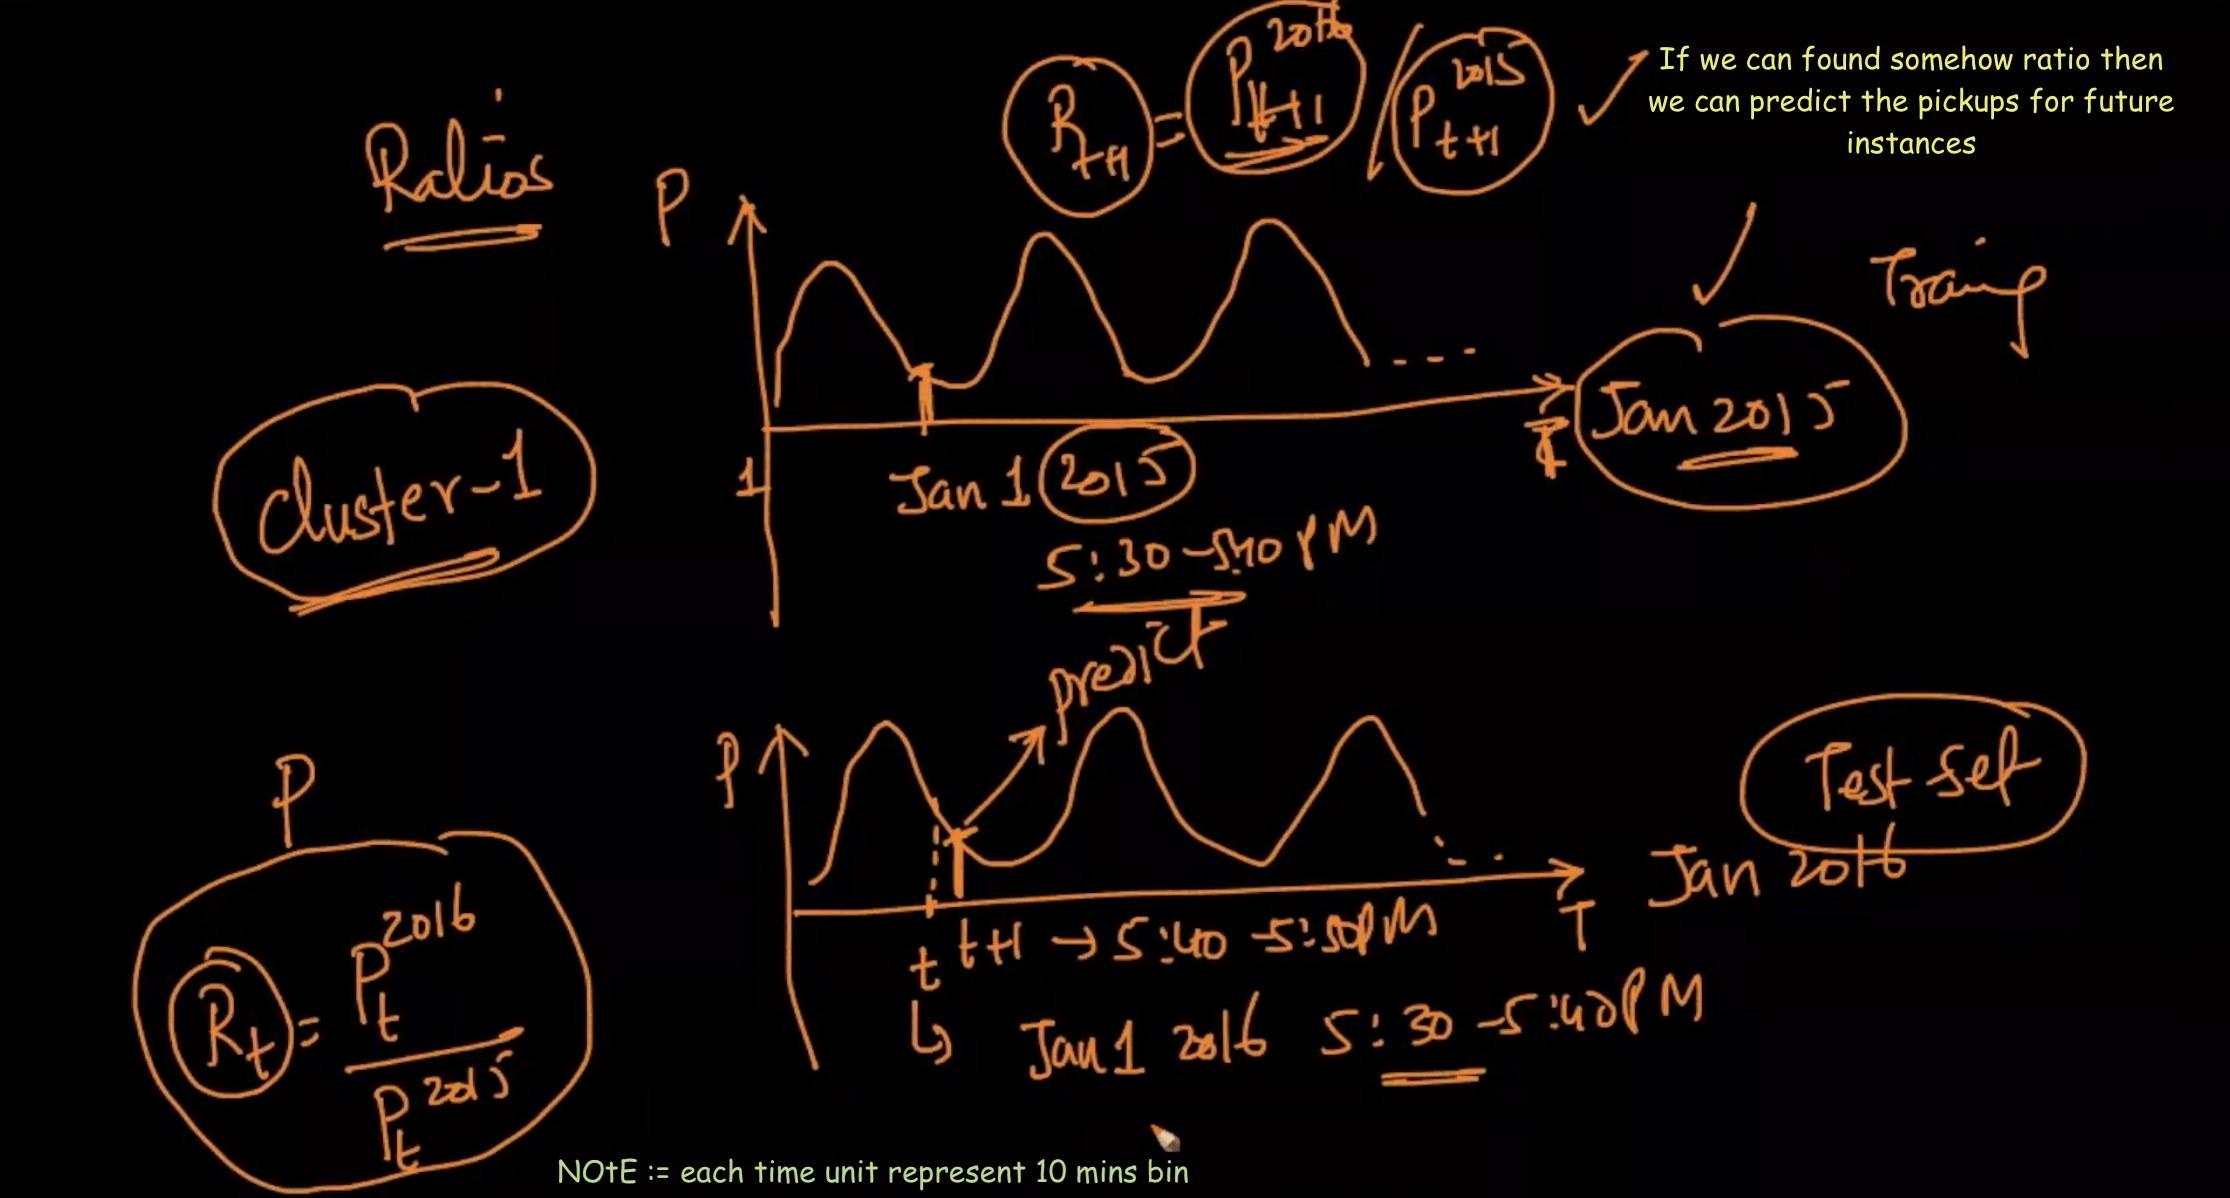 Ratios
R t+1 = P t+1 2016 / P t+1 2015
If we can found somehow ratio then
we can predict the pickups for future
instances
P
Traing
Jan 2015
Cluster-1
1
Jan 1 2015
5:30 - 5:40 PM
predict
P
Test Set
Jan 2016
T
t
t+1 → 5:40 - 5:50PM
Jan 1 2016 5:30 - 5:40PM
P
R t = P t 2016
P t 2015
NOtE := each time unit represent 10 mins bin